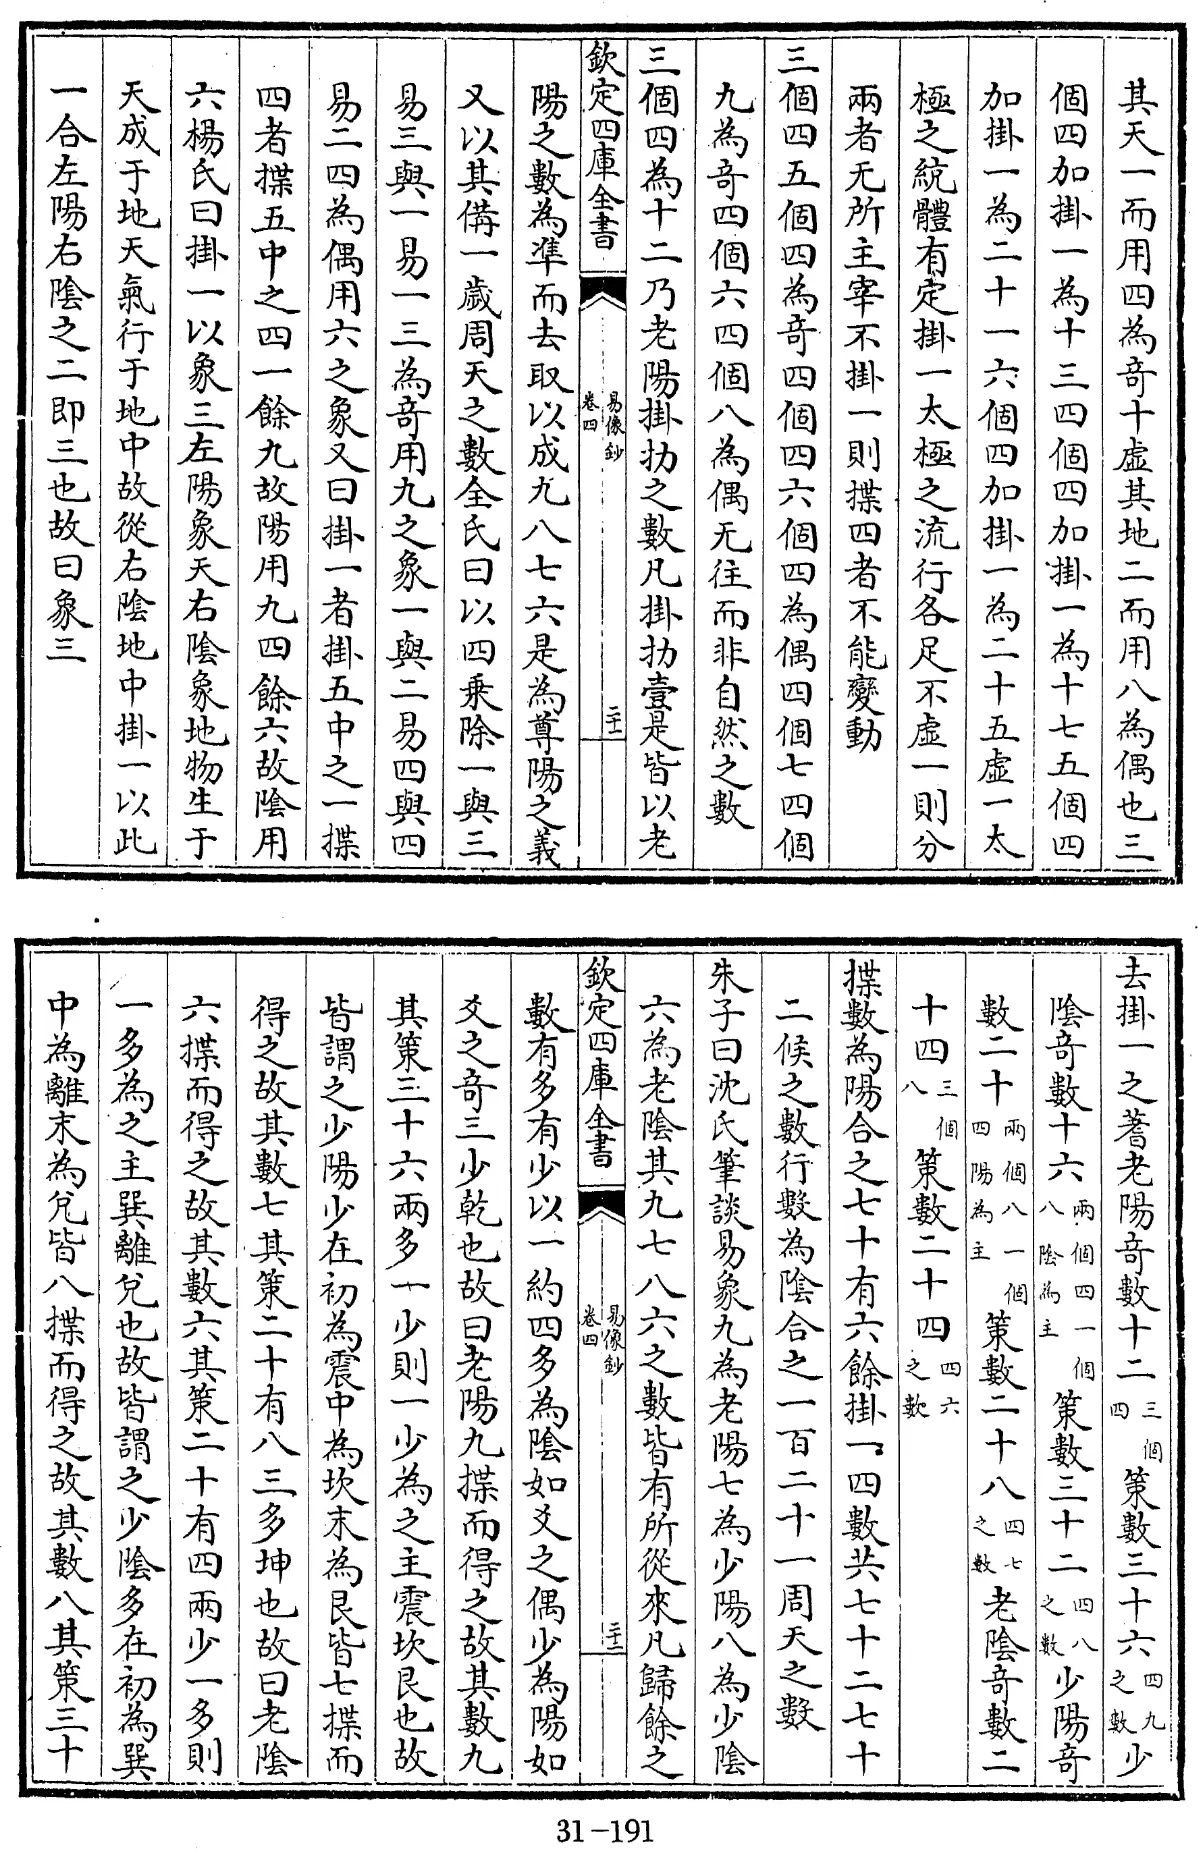 其天一而用四為奇十虛其地二而用八為偶也三
個四加掛一為十三四個四加掛一為十七五個四
加掛一為二十一六個四加掛一為二十五虛一太
極之統體有定掛一太極之流行各足不虛一則分
兩者无所主宰不掛一則揲四者不能變動
三個四五個四為奇四個四六個四為偶四個七四個
九為奇四個六四個八為偶无往而非自然之數
三個四為十二乃老陽掛扐之數凡掛扐壹是皆以老
欽定四庫全書
易像鈔
卷四
二十一
陽之數為準而去取以成九八七六是為尊陽之義
又以其備一歲周天之數全氏曰以四乘除一與三
易三與一易一三為奇用九之象一與二易四與四
易二四為偶用六之象又曰掛一者掛五中之一揲
四者揲五中之四一餘九故陽用九四餘六故陰用
六楊氏曰掛一以象三左陽象天右陰象地物生于
天成于地天氣行于地中故從右陰地中掛一以此
一合左陽右陰之二即三也故曰象三
去掛一之蓍老陽奇數十二三個四策數三十六四九之數少
陰奇數十六兩個四一個八陰為主策數三十二四八之數少陽奇
數二十兩個八一個四陽為主策數二十八四七之數老陰奇數二
十四三個八策數二十四四六之數
揲數為陽合之七十有六餘掛一四數共七十二七十
二候之數行數為陰合之一百二十一周天之數
朱子曰沈氏筆談易象九為老陽七為少陽八為少陰
六為老陰其九七八六之數皆有所從來凡歸餘之
欽定四庫全書
易像鈔
卷四
二十二
數有多有少以一約四多為陰如爻之偶少為陽如
爻之奇三少乾也故曰老陽九揲而得之故其數九
其策三十六兩多一少則一少為之主震坎艮也故
皆謂之少陽少在初為震中為坎末為艮皆七揲而
得之故其數七其策二十有八三多坤也故曰老陰
六揲而得之故其數六其策二十有四兩少一多則
一多為之主巽離兌也故皆謂之少陰多在初為巽
中為離末為兌皆八揲而得之故其數八其策三十
31-191